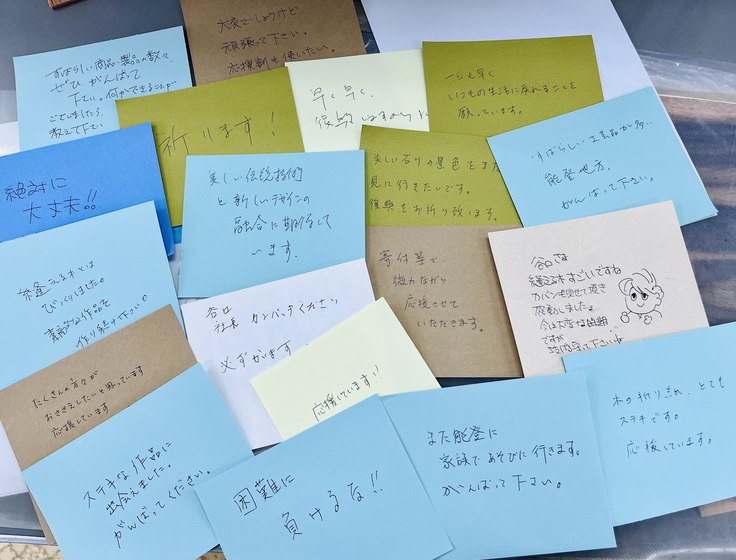 大変でしょうけど
頑張って下さい。
応援割も使いたい。
すばらしい商品・製品の数々
ぜひ がんばって
下さい。何かできることが
ございましたら
教えて下さい
早く早く、
復興しますように
一日も早く
いつもの生活に戻れることを
願っています。
祈ります!
絶対に
大丈夫!!
美しい伝統技術
と新しいデザインの
融合に期待して
います。
美しい石川の景色をまた
見に行きたいです。
復興をお祈り致します。
すばらしい工芸品が多い
能登地方、
がんばって下さい。
縫える木とは
びっくりました。
素敵な作品を
作り続け下さい
谷口
社長 ガンバッテください
必ずかいます
寄付等で
微力ながら
応援させて
いただきます。
谷口さま
縫える木すごいですね
カバンも見せて頂き
感動しました。
今は大変な時期
ですが
頑張って下さい
たくさんの方々が
おささえしたいと思っています
応援しています
応援しています!!
ステキな作品に
出会えました。
がんばってください。
困難に
負けるな!!
また能登に
家族であそびに行きます。
がんばって下さい。
木の折り紙、とても
ステキです。
応援しています。